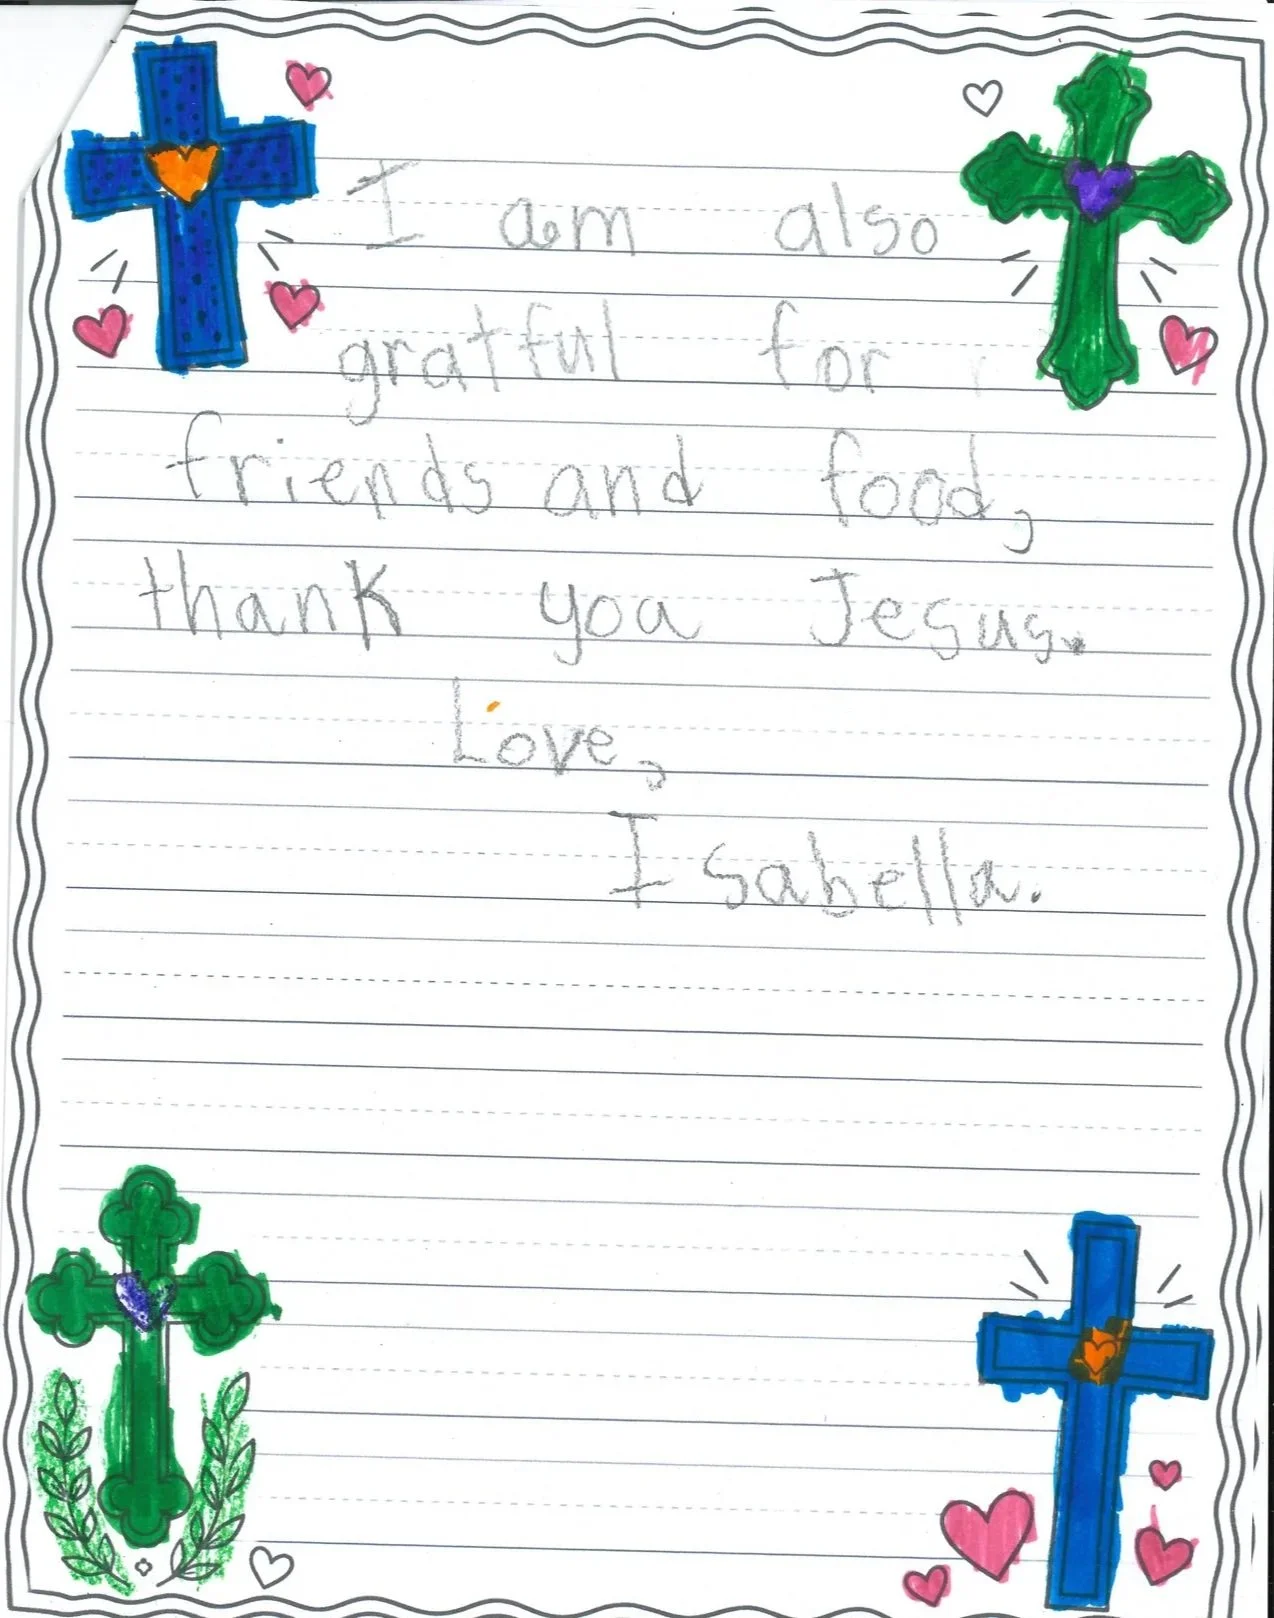 I am also
gratful for
friends and food,
thank you Jesus.
Love,
Isabella.